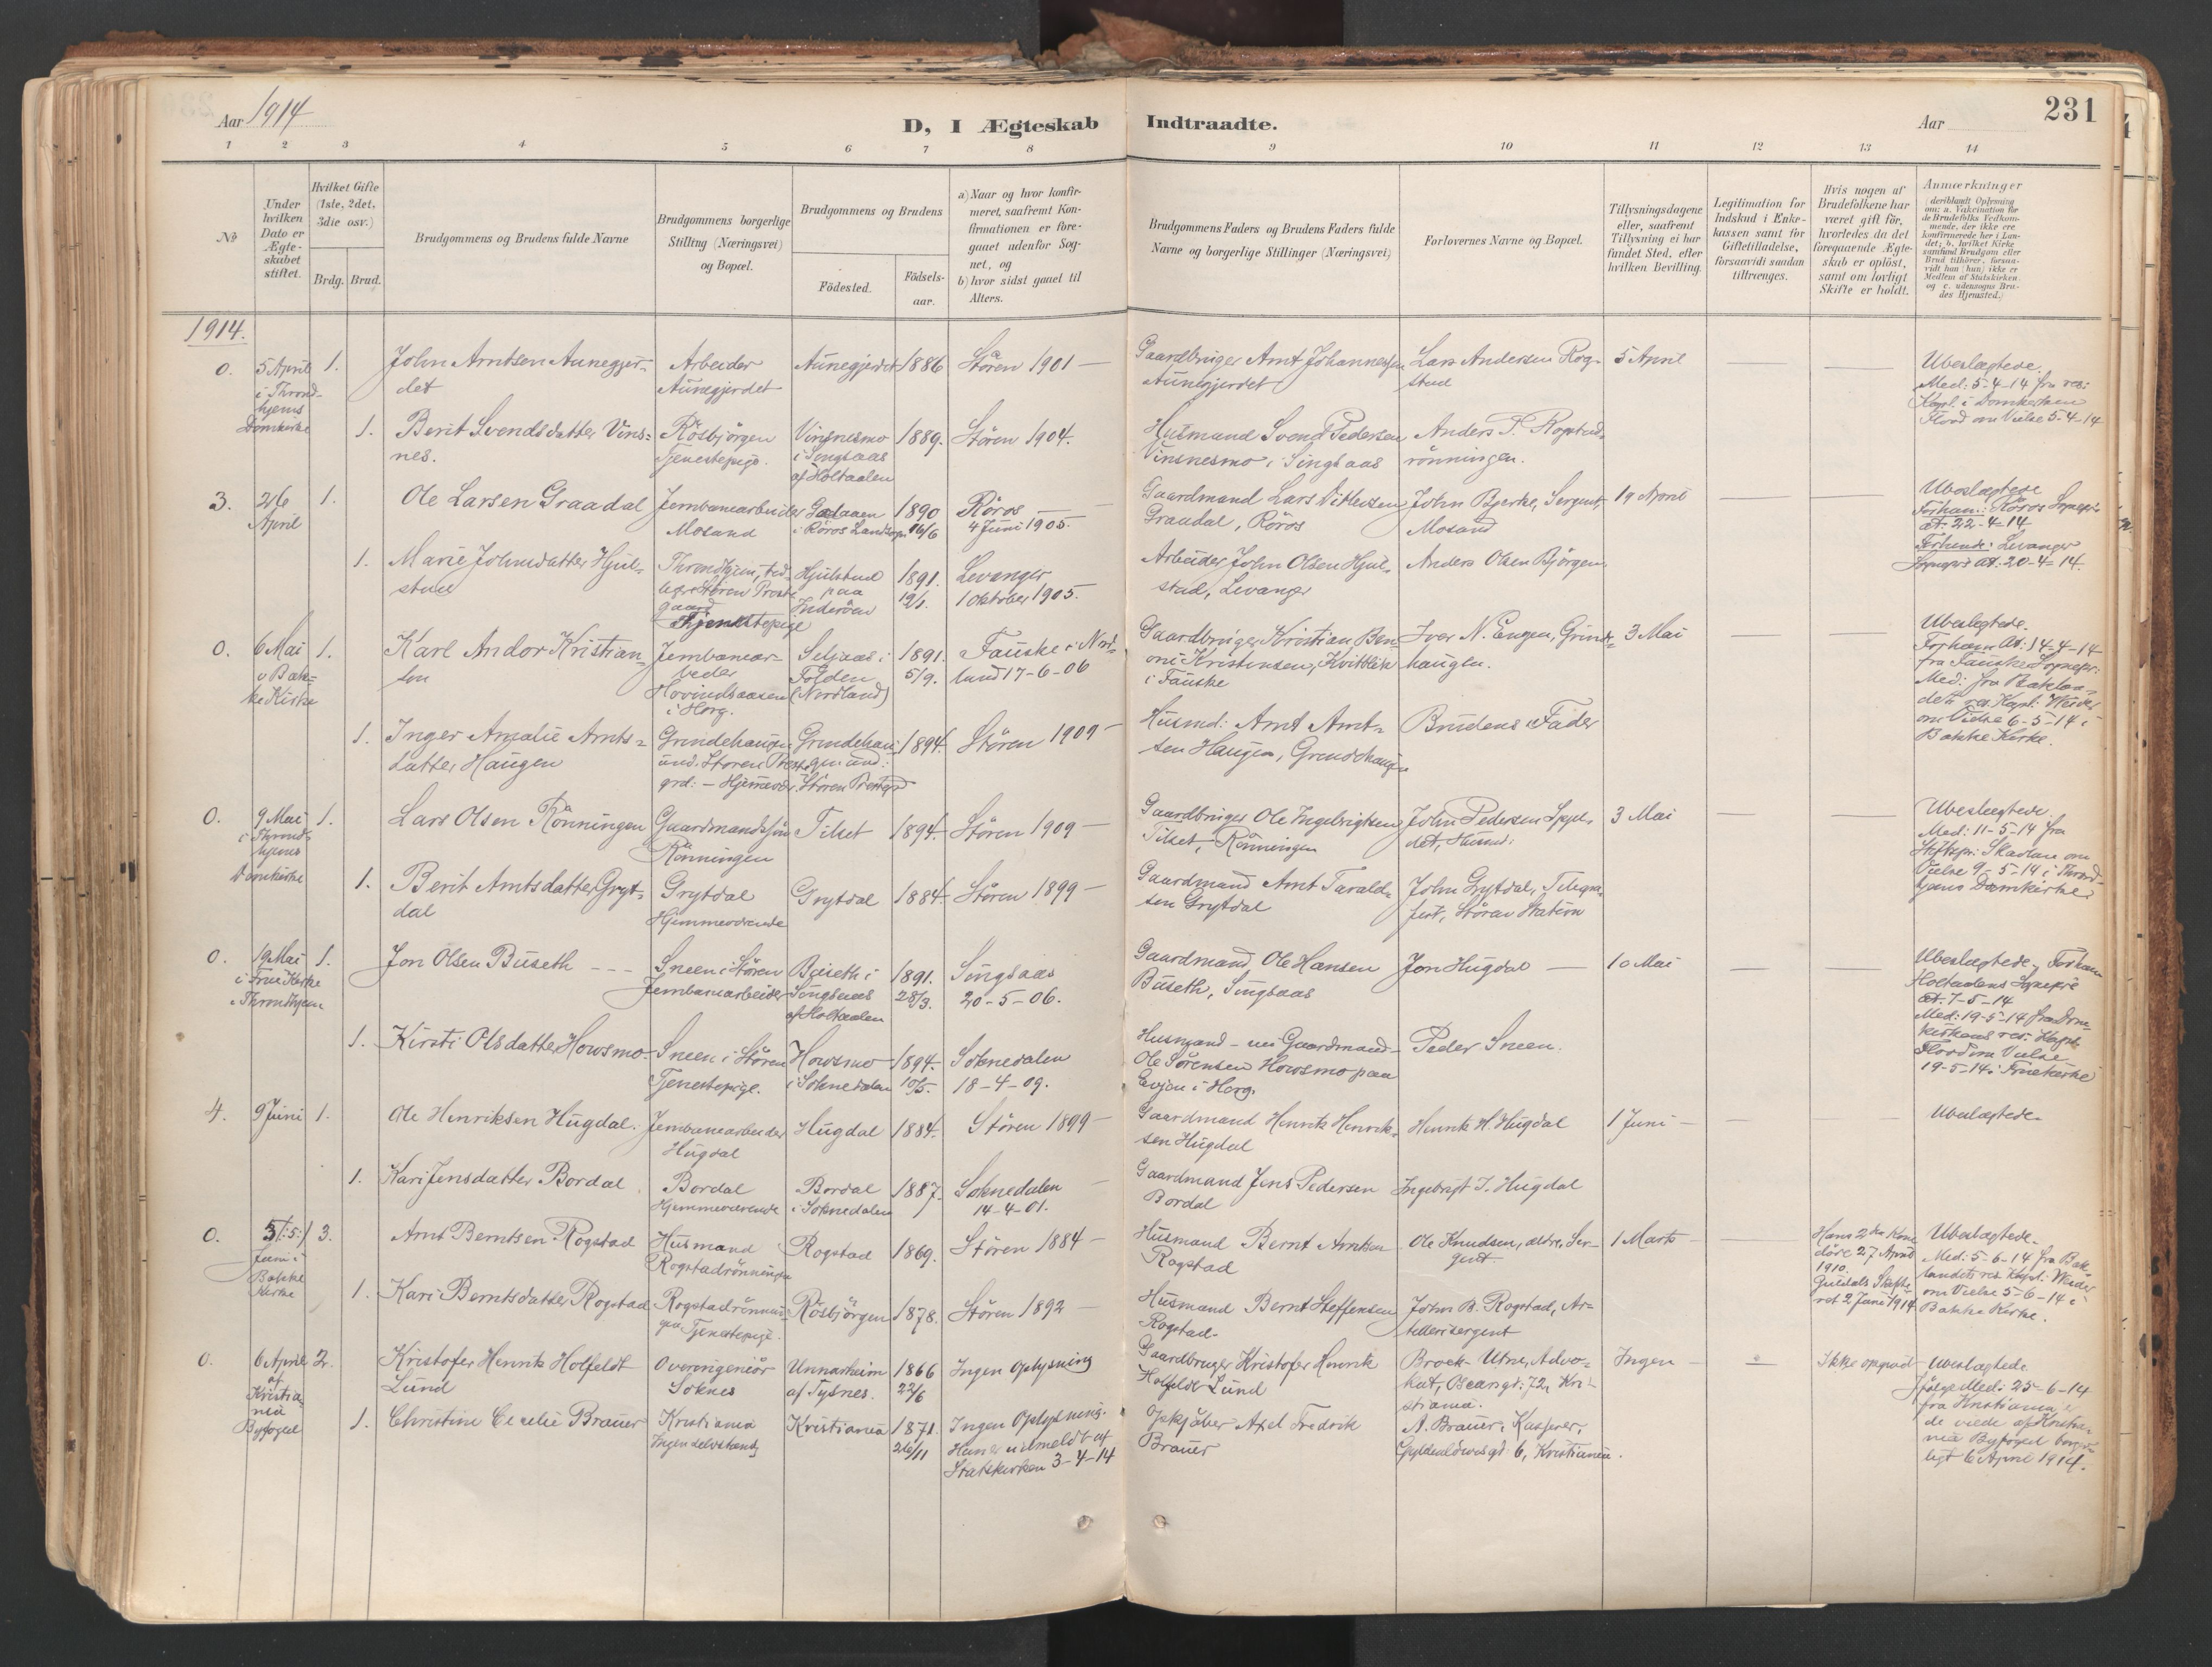 Aar 1914
D, I Ægteskab Indtraadte.
Aar
231
1 2 3 4 5 6 7 8 9 10 11 12 13 14
No
Under hvilken Dato er Ægteskabet stiftet.
Hvilket Gifte (1ste, 2det, 3die osv.)
Brdg. Brud.
Brudgommens og Brudens fulde Navne
Brudgommens borgerlige Stilling (Næringsvei) og Bopæl.
Brudgommens og Brudens
Födested.
Födselsaar.
a) Naar og hvor konfirmeret, saafremt Konfirmationen er foregaaet udenfor Sognet, og
b) hvor sidst gaaet til Alters.
Brudgommens Faders og Brudens Faders fulde Navne og borgerlige Stillinger (Næringsvei)
Forlovernes Navne og Bopæl.
Tillysningsdagene eller, saafremt Tillysning ei har fundet Sted, efter hvilken Bevilling.
Legitimation for Indskud i Enkekassen samt for Giftetilladelse, forsaavidt saadan tiltrænges.
Hvis nogen af Brudefolkene har været gift för, hvorledes da det foregaaende Ægteskab er oplöst, samt om lovligt Skifte er holdt.
Anmærkninger (deriblandt Oplysning om: a. Vakcination for de Brudefolks Vedkommende, der ikke ere konfirmerede her i Landet; b. hvilket Kirkesamfund Brudgom eller Brud tilhörer, forsaavidt han (hun) ikke er Medlem af Statskirken, og c. udensogns Brudes Hjemsted.)
1914.
0. 5 April i Throndhjems Domkirke 1. John Arntsen Aunegjerdet Arbeider Aunegjerdet Aunegjerdet 1886 Støren 1901 — Gaardbruger Arnt Johannessen Aunegjerdet Lars Andersen Rogstad 5 April — — Ubeslægtede. Med: 5-4-14 fra res: Kapl. i Domkirken Flood om Vielse 5-4-14
1. Berit Svendsdatter Vinsnes. Rösbjörgen Tjenestepige. Vinsnesmo i Singsaas af Holtaalen 1889. Støren 1904. Husmand Svend Pedersen Vinsnesmo i Singsaas Anders T. Rogstadrönningen.
3. 26 April 1. Ole Larsen Graadal Jernbanearbeider Mosand i Röros Landsogn 1890 16/6 Röros — 4 Juni 1905. Gaardmand Lars Graadal, Röros John Bjerke, Sergent, Mosand 19 April — — Ubeslægtede Forhen.: Röros Sognepr. at. 22-4-14. Forhende: Levanger Sognepr at. 20-4-14.
1. Marie Johnsdatter Hjulstad Throndhjem, Støren Prestegaard Tjenestepige Hjulstad paa Inderöen 1891. 19/1. Levanger 1 Oktober 1905. Arbeider John Olsen Hjulstad, Levanger Anders Olsen Bjørgen
0. 6 Mai i Bakke Kirke 1. Karl Andor Kristiansen Jernbanearbeider Hovindsaasen i Horg. Seljaas i Folden (Nordland) 1891. 5/9. Fauske i Nordland 17-6-06 Gaardbruger Kristian Benoni Kristensen, Kvitblik i Fauske Iver N. Engen, Grindehaugen. 3 Mai Ubeslægtede. Forhaan At: 14-4-14 fra Fauske Sognepr: Med: fra Baklandets res Kapl: Weider om Vielse 6-5-14 i Bakke Kirke.
1. Inger Amalie Arntsdatter Haugen Grindehaugen und. Støren Prestegrd: — Hjemmevær. Grindehaugen und: Støren Prestegrd 1894. Støren 1909 — Husmd: Arnt Arntsen Haugen, Grindehaugen Brudens Fader
0. 9 Mai i Throndhjems Domkirke 1. Lars Olsen Rønningen Gaardmandssøn Rønningen Tilset 1894. Støren 1909 — Gaardbruger Ole Ingebrigtsen Tilset, Rønningen John Pedersen 3 Mai — — Ubeslægtede. Med: 11-5-14 fra Stiftspr: Skavlan om Vielse 9-5-14 i Throndhjems Domkirke.
1. Berit Arntsdatter Grytdal Grytdal Hjemmeværende Grytdal 1884. Støren 1899 — Gaardmand Arnt Taraldsen Grytdal John Grytdal, Telegrafist, Støren Station
0. 19 Mai i Frue Kirke i Throndhjem 1. Jon Olsen Buseth - - - Sneen i Støren Jernbanearbeider Buseth i Singsaas af Holtaalen 1891. 28/3. Singsaas 20-5-06. Gaardmand Ole Hansen Buseth, Singsaas Jon Hugdal — 10 Mai — — Ubeslægtede, Forhaan Holtaalens Sognepr. at. 7-5-14 Med: 19-5-14 fra Domkirkens res. Kapl. Flood om Vielse 19-5-14 i Fruekirke
1. Kirsti Olsdatter Howsmo Sneen i Støren Tjenestepige. Howsmo i Soknedalen 1894. 10/5. Soknedalen 18-4-09. Husmand — nu Gaardmand — Ole Sørensen Howsmo paa Evjen i Horg. Peder Sneen.
4. 9 Juni 1. Ole Henriksen Hugdal. Jernbanearbeider Hugdal Hugdal 1884. Støren 1899 — Gaardmand Henrik Henriksen Hugdal Henrik H. Hugdal 1 Juni — — — Ubeslægtede.
1. Kari Jensdatter Bordal Bordal Hjemmeværende Bordal i Soknedalen 1887. Soknedalen 14-4-01. Gaardmand Jens Pedersen Bordal Ingebrigt J. Hugdal
0. 5 (:5:) Juni i Bakke Kirke 3. Arnt Berntsen Rogstad Husmand Rogstadrønningen Rogstad 1869. Støren 1884 — Husmand Bernt Arntsen Rogstad Ole Knudsen, ældre, Sergent 1 Marts Hans 2den Kone døde 27 April 1910. Guldals Skifteret 2 Juni 1914 Ubeslægtede. Med: 5-6-14 fra Baklandets res Kapl: Weider om Vielse 5-6-14 i Bakke Kirke.
1. Kari Berntsdatter Rogstad Rogstadrønningen Tjenestepige. Rösbjörgen 1878. Støren 1892 — Husmand Bernt Steffensen Rogstad. John B. Rogstad, Artillerisergent
0. 6 April af Kristiania Byfoged 2. Kristofer Henrik Holfeldt Lund Overingeniör Soknes Unnarheim af Tysnes. 1866 22/6 Ingen Oplysning Gaardbruger Kristofer Henrik Holfeldt Lund Brock-Utne, Advokat, Oscarsgt: 72, Kristiania. Ingen — — Ikke opgivet Ubeslægtede. Ifølge Med: 25-6-14 fra Kristiania er de viede af Kristiania Byfoged borgerligt 6 April 1914.
1. Christine Cecelie Braüer Kristiania Kristiania 1871. 26/11 Ingen Oplysning. Hun er udmeldt af Statskirken 3-4-14 Opkjøber Axel Fredrik Braüer A. Braüer, Kasserer, Gyldenløvesgt. 6, Kristiania.